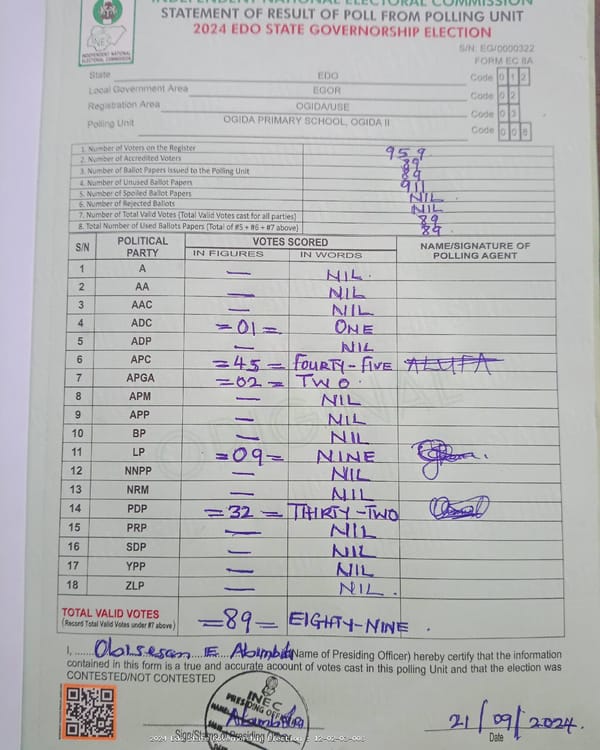 INDEPENDENT NATIONAL ELECTORAL COMMISSION
STATEMENT OF RESULT OF POLL FROM POLLING UNIT
2024 EDO STATE GOVERNORSHIP ELECTION
INEC
INDEPENDENT NATIONAL ELECTORAL COMMISSION
S/N: EG/0000322
FORM EC 8A
State EDO Code 0 1 2
Local Government Area EGOR Code 0 2
Registration Area OGIDA/USE Code 0 3
Polling Unit OGIDA PRIMARY SCHOOL, OGIDA II Code 0 0 8
1. Number of Voters on the Register 959
2. Number of Accredited Voters 89
3. Number of Ballot Papers Issued to the Polling Unit 89
4. Number of Unused Ballot Papers 911
5. Number of Spoiled Ballot Papers NIL
6. Number of Rejected Ballots NIL
7. Number of Total Valid Votes (Total Valid Votes cast for all parties) 89
8. Total Number of Used Ballots Papers (Total of #5 + #6 + #7 above) 89
S/N POLITICAL PARTY VOTES SCORED NAME/SIGNATURE OF POLLING AGENT
IN FIGURES IN WORDS
1 A — NIL.
2 AA — NIL
3 AAC — NIL
4 ADC =01= ONE
5 ADP — NIL
6 APC =45= FOURTY-FIVE ALUFA
7 APGA =02= TWO.
8 APM — NIL
9 APP — NIL
10 BP — NIL
11 LP =09= NINE
12 NNPP — NIL
13 NRM — NIL
14 PDP =32= THIRTY-TWO
15 PRP — NIL
16 SDP — NIL
17 YPP — NIL
18 ZLP — NIL.
TOTAL VALID VOTES =89= EIGHTY-NINE.
(Record Total Valid Votes under #7 above)
I, E. (Name of Presiding Officer) hereby certify that the information
contained in this form is a true and accurate account of votes cast in this polling Unit and that the election was
CONTESTED/NOT CONTESTED
INEC
PRESIDING OFFICER
21/09/2024.
Date